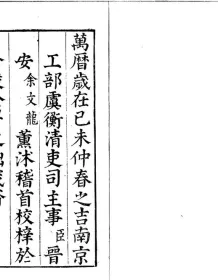 萬曆歲在己未仲春之吉南京
工部虞衡清吏司主事臣晉
安余文龍薰沐稽首校梓於